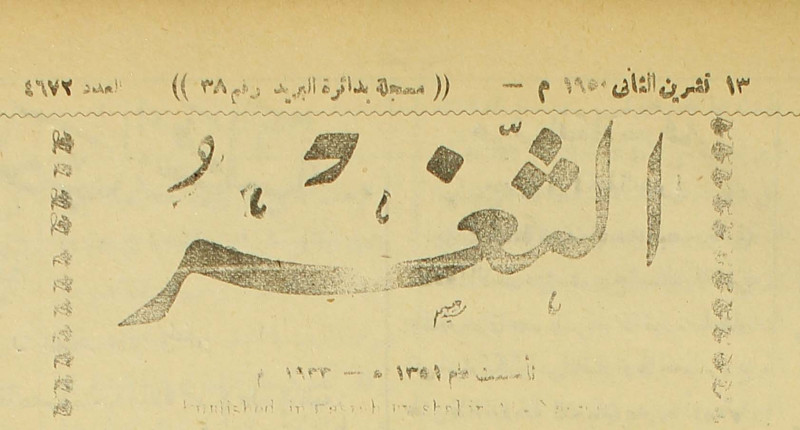 ١٣ تشرين الثانى ١٩٥٠ م — (( مسجلة بدائرة البريد رقم ٣٨ )) العدد ٤٦٧٢
الثَّغْرُ
تأسست عام ١٣٥١ ه — ١٩٣٣ م
Published in